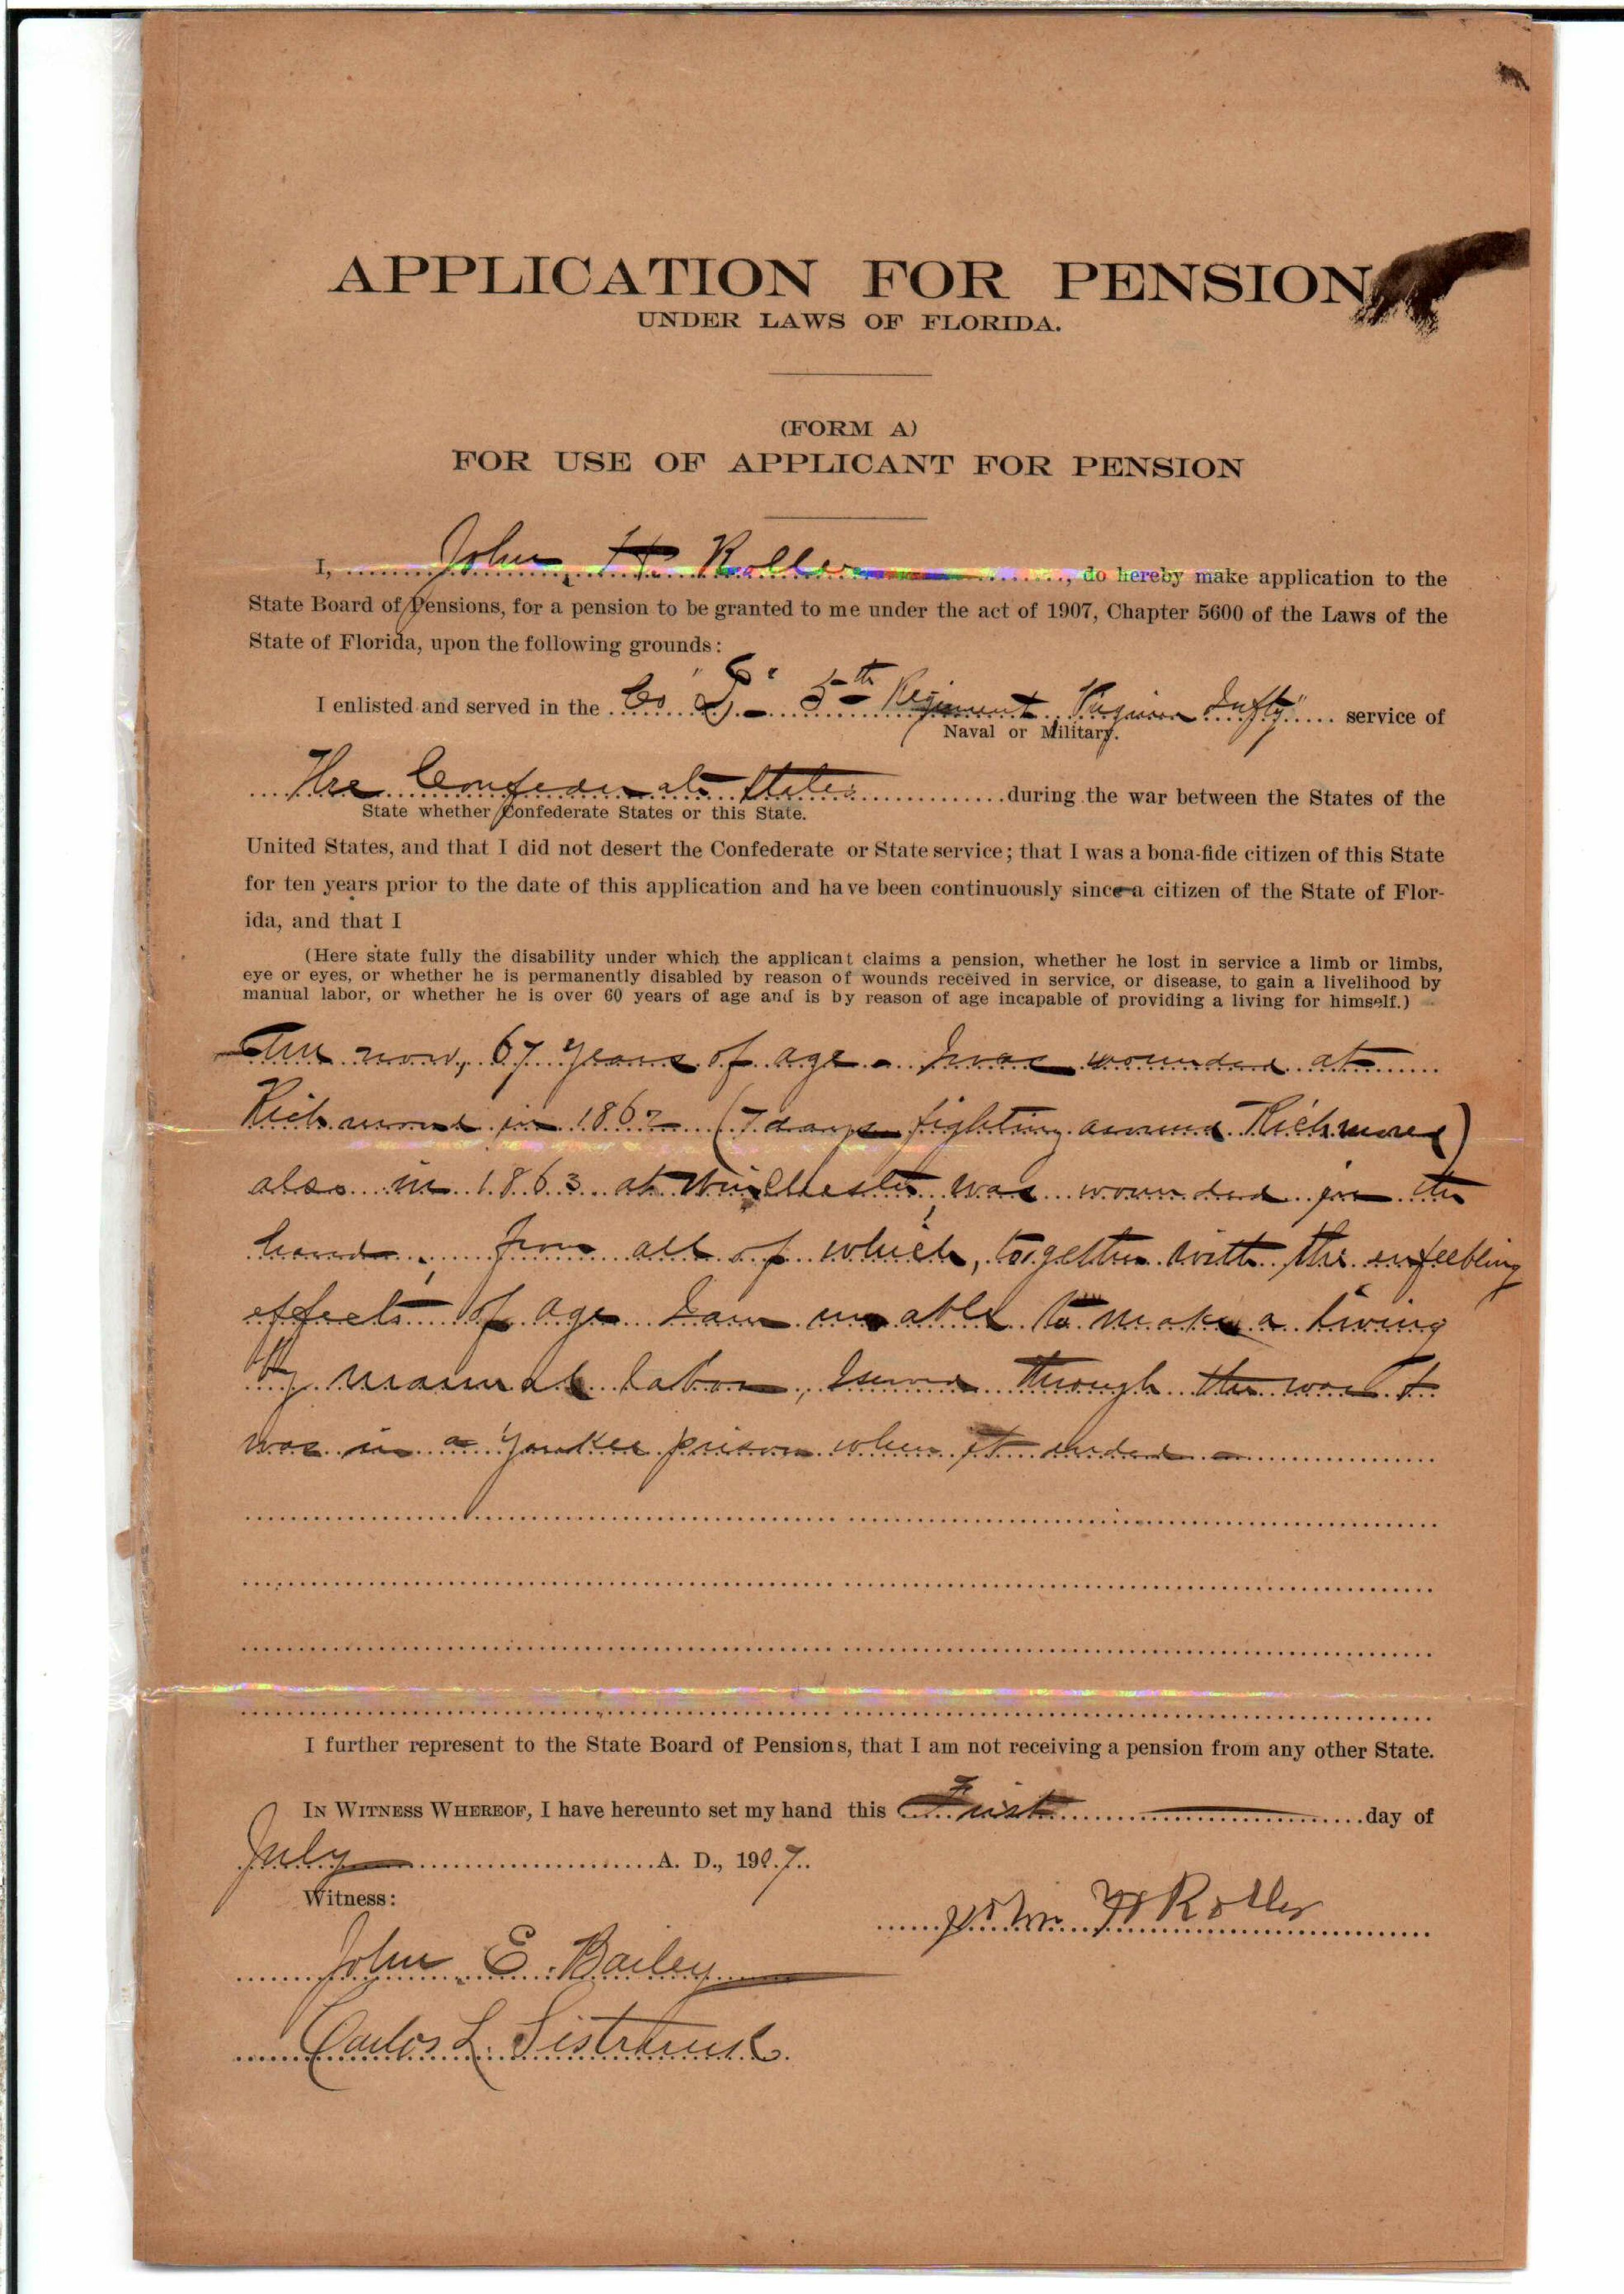 APPLICATION FOR PENSION
UNDER LAWS OF FLORIDA.
(FORM A)
FOR USE OF APPLICANT FOR PENSION
I, John H. Roller, do hereby make application to the
State Board of Pensions, for a pension to be granted to me under the act of 1907, Chapter 5600 of the Laws of the
State of Florida, upon the following grounds:
I enlisted and served in the Co 5th Regiment, Virginia Infty service of
Naval or Military.
The Confederate States during the war between the States of the
State whether Confederate States or this State.
United States, and that I did not desert the Confederate or State service; that I was a bona-fide citizen of this State
for ten years prior to the date of this application and have been continuously since a citizen of the State of Flor-
ida, and that I
(Here state fully the disability under which the applicant claims a pension, whether he lost in service a limb or limbs,
eye or eyes, or whether he is permanently disabled by reason of wounds received in service, or disease, to gain a livelihood by
manual labor, or whether he is over 60 years of age and is by reason of age incapable of providing a living for himself.)
Am now, 67 years of age - I was wounded at
Richmond in 1862 (7 days fighting around Richmond)
also in 1863 at Winchester, was wounded in the
hand, from all of which, together with the enfeebling
effects of age I am unable to make a living
by manual labor, I served through the war &
was in a Yankee prison when it ended -
I further represent to the State Board of Pensions, that I am not receiving a pension from any other State.
IN WITNESS WHEREOF, I have hereunto set my hand this First day of
July A. D., 1907.
Witness:
John H Roller
John E. Bailey
Carlos L. Sistrunk